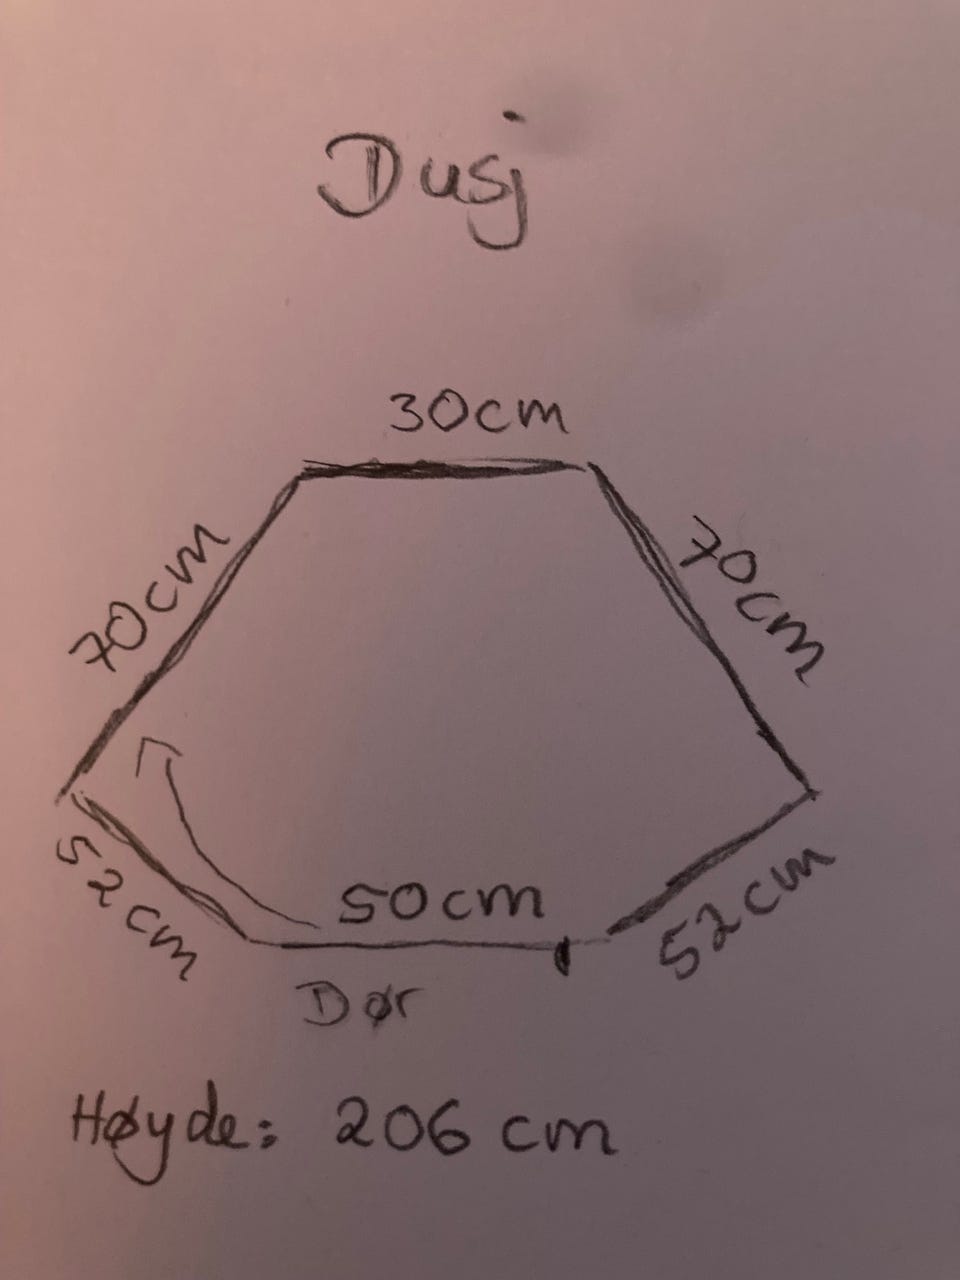 Dusj
30cm
70cm
70cm
52cm
50cm
52cm
Dør
Høyde: 206 cm